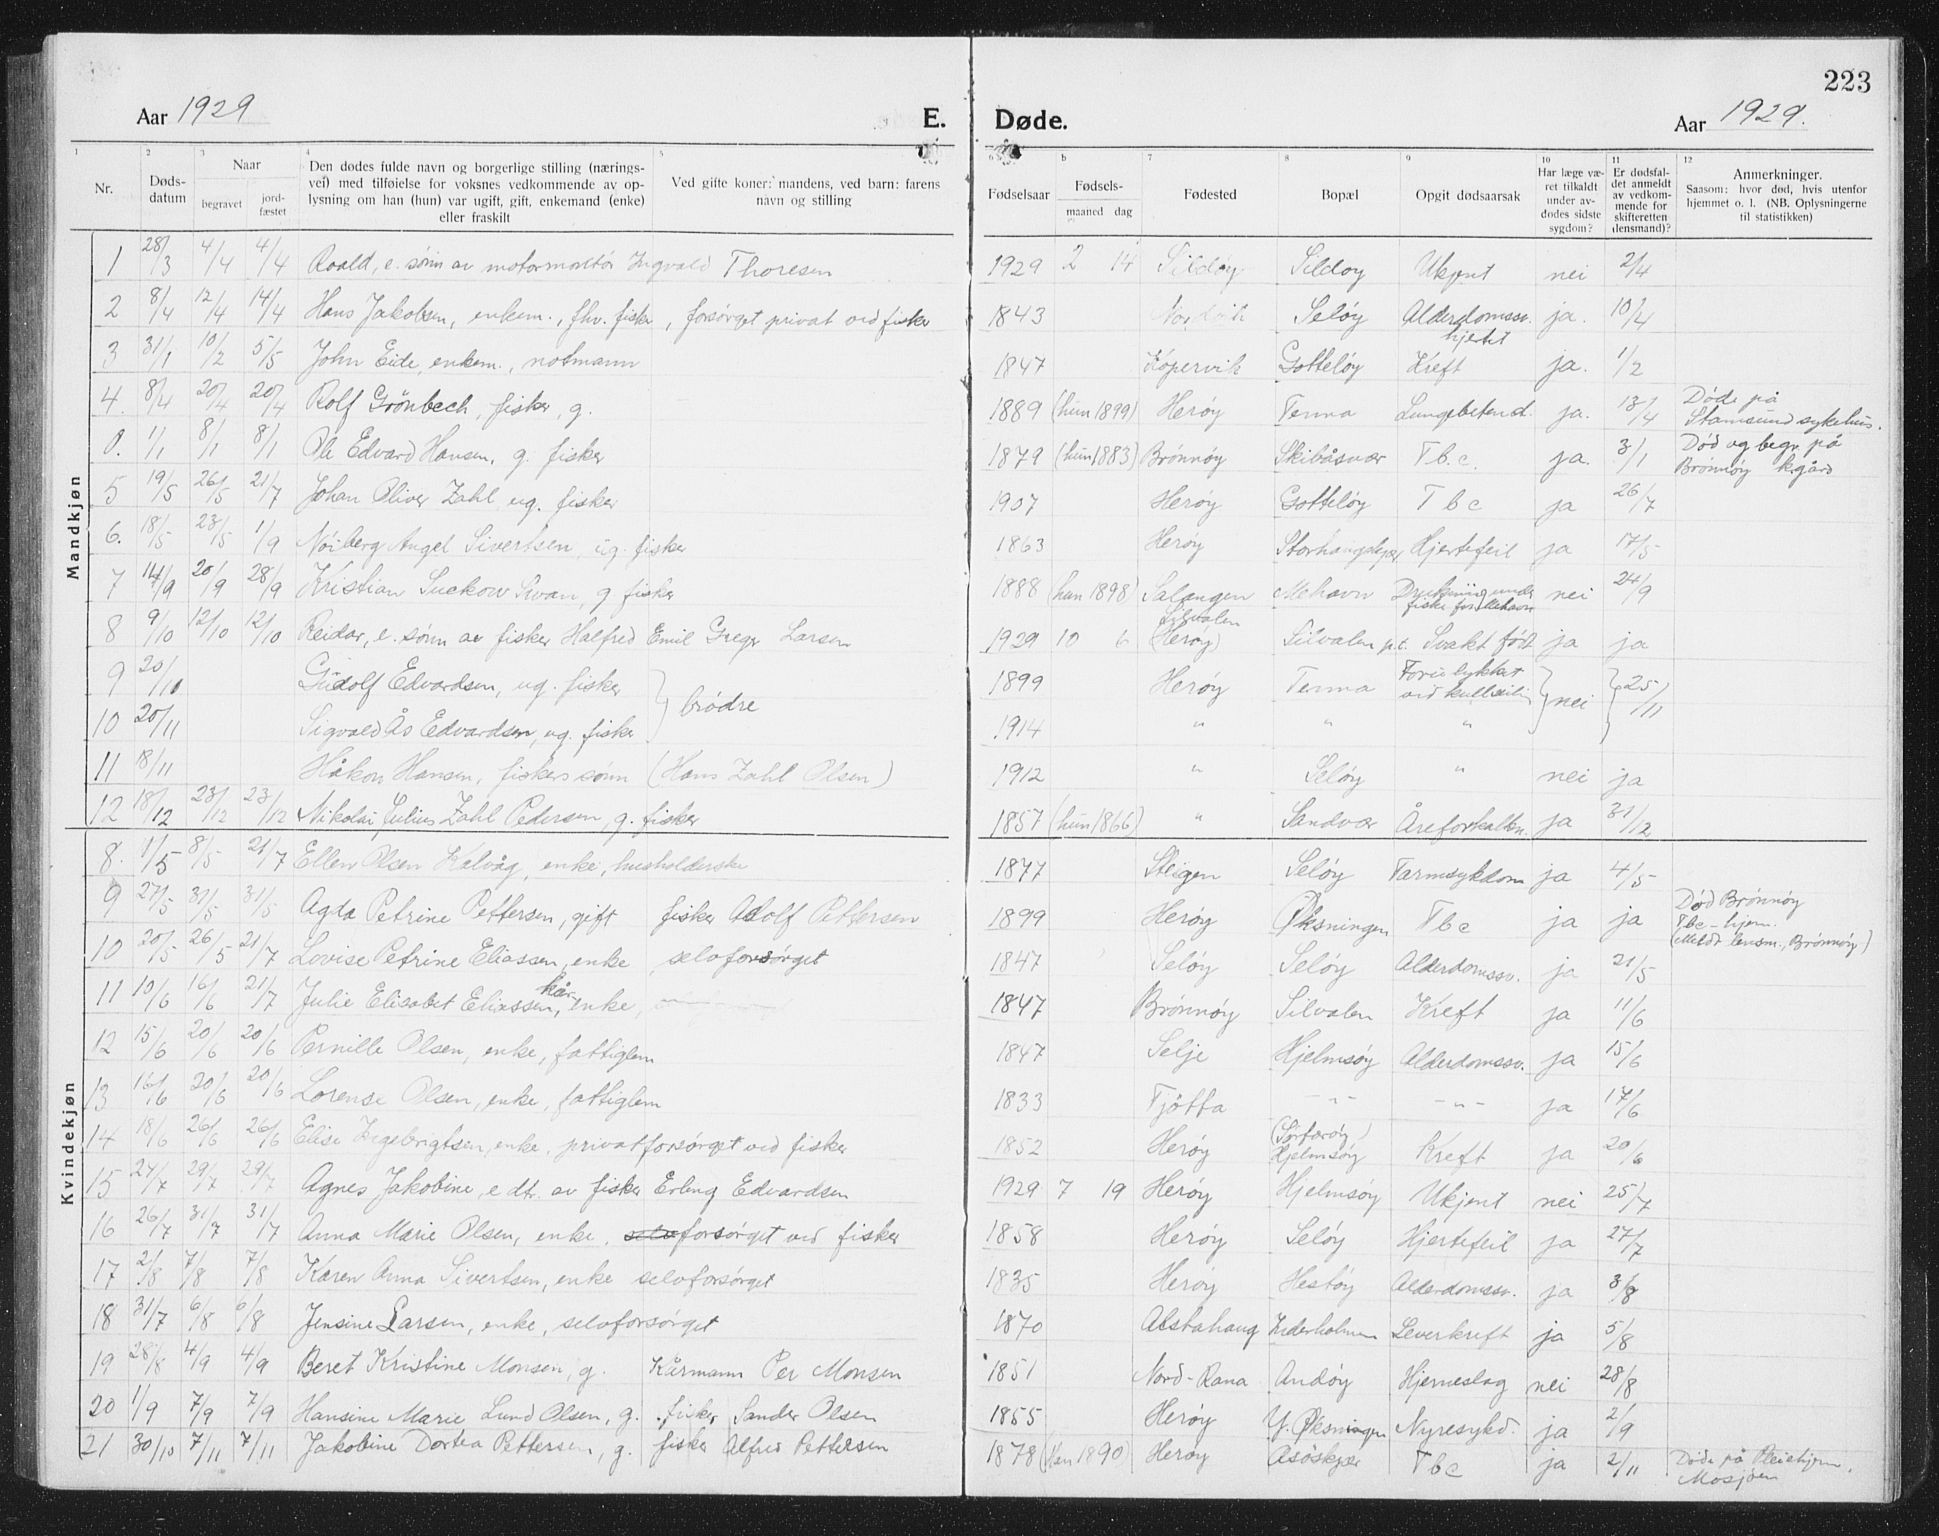 223
Aar 1929 E. Døde. Aar 1929.
1 2 3 4 5 6 b 7 8 9 10 11 12
Nr. Døds-datum Naar begravet jord-fæstet Den dødes fulde navn og borgerlige stilling (nærings-vei) med tilføielse for voksnes vedkommende av op-lysning om han (hun) var ugift, gift, enkemand (enke) eller fraskilt Ved gifte koner: mandens, ved barn: farens navn og stilling Fødselsaar Fødsels- maaned dag Fødested Bopæl Opgit dødsaarsak Har læge væ-ret tilkaldt under av-dødes sidste sygdom? Er dødsfal-det anmeldt av vedkom-mende for skifteretten (lensmand)? Anmerkninger. Saasom: hvor død, hvis utenfor hjemmet o. l. (NB. Oplysningerne til statistikken)
Mandkjøn
1 28/3 4/4 4/4 Roald, e. sönn av motormontör Ingvald Thoresen 1929 2 14 Sildöy Sildoy Ukjent nei 2/4
2 8/4 12/4 14/4 Hans Jakobsen, enkem., fhv. fisker, forsörget privat ved fisker 1843 Seløy Alderdomssv. hjertet ja. 10/4
3 31/1 10/2 5/5 John Eide, enkem., notmann 1847 Kopervik Gotteløy Kreft ja. 1/2
4. 8/4 20/4 20/4 Rolf Grönbech, fisker, g. 1889 (hun 1899) Herøy Tenna Lungebetend. ja. 13/4 Døde på Stamsund sykehus.
0. 1/1 8/1 8/1 Ole Edvard Hansen, g. fisker 1879 (hun 1883) Brönnöy Skibåsvær Tb.c. ja. 3/1 Død og begr. på Brønnøy k.gård
5 19/5 26/5 21/7 Johan Oliver Zahl ug. fisker 1907 Herøy Gotteløy Tbc ja 26/7
6. 18/5 23/5 1/9 Nöiberg Angel Sivertsen, ug. fisker 1863 Heröy Hjertefeil ja 17/5
7 14/9 20/9 28/9 Kristian Suckow Swan, g fisker 1888 (hun 1898) Salangen Mehavn under fiske for Mehavn nei 24/9
8 9/10 12/10 12/10 Reidar, e. sönn av fisker Halfred Emil Greger Larsen 1929 10 6 Silvalen (Herøy) Silvalen p.t. Svakt født ja ja
9 20/10 Gudolf Edvardsen, ug. fisker } brödre 1899 Herøy Tenna Forulykket ved kullseiling } nei } 25/11
10 20/11 Sigvald Ås Edvardsen, ug. fisker 1914 " " "
11 18/11 Håkon Hansen, fiskers sönn (Hans Zahl Olsen) 1912 " Seløy " nei ja
12 18/12 23/12 23/12 Nikolai Julius Zahl Pedersen, g. fisker 1857 (hun 1866) " Sandvær Åreforkalkn. ja 31/12
Kvindekjøn
8. 1/5 8/5 21/7 Ellen Olsen Kalvåg, enke, husholderske 1877 Steigen Seløy Tarmsykdom ja 4/5
9 27/5 31/5 31/5 Agda Petrine Pettersen, gift fisker Adolf Pettersen 1899 Heröy Øksningen Tbc ja ja Død Brönnöy Tbc-hjem. (Meldt lensm., Brönnöy)
10 20/5 26/5 21/7 Lovise Petrine Eliassen, enke, selvforsörget 1847 Seløy Seløy Alderdomssv. ja 21/5
11 10/6 16/6 21/7 Julie Elisabet Eliassen, kår enke, 1847 Brönnöy Silvalen Kreft ja 11/6
12 15/6 20/6 20/6 Pernille Olsen, enke, fattiglem 1847 Selje Hjelmsöy Alderdomssv. ja 15/6
13 16/6 20/6 20/6 Lorense Olsen, enke, fattiglem 1833 Tjötta -"- -"- ja 17/6
14 18/6 26/6 26/6 Elise Ingebrigtsen, enke, privatforsörget ved fisker 1852 Heröy (Sörherøy) Hjelmsöy Kreft ja 20/6
15 24/7 29/7 29/7 Agnes Jakobine, e dtr. av fisker Erling Edvardsen 1929 7 19 Heröy Hjelmsöy Ukjent nei 25/7
16 26/7 31/7 31/7 Anna Marie Olsen, enke, selvforsörget ved fisker 1858 Heröy Seløy Hjertefeil ja 27/7
17 2/8 7/8 7/8 Karen Anna Sivertsen, enke selvforsörget 1835 Heröy Hestöy Alderdomssv. ja 3/8
18 31/7 6/8 6/8 Jensine Larsen, enke, selvforsörget 1870 Alstahaug Inderholmen Leverkreft ja 5/8
19 28/8 4/9 4/9 Beret Kristine Monsen, g. Kårmann Per Monsen 1851 Nord-Rana Andöy Hjerneslag nei 28/8
20 1/9 7/9 7/9 Hansine Marie Lund Olsen, g. fisker Sander Olsen 1855 Heröy Y. Øksningen Nyresykd. ja 2/9
21 30/10 7/11 7/11 Jakobine Dortea Pettersen, g. fisker Alfred Pettersen 1878 (Han 1890) Heröy Åsöskjær Tbc ja 2/11 Døde på Pleiehjem, Mosjøen